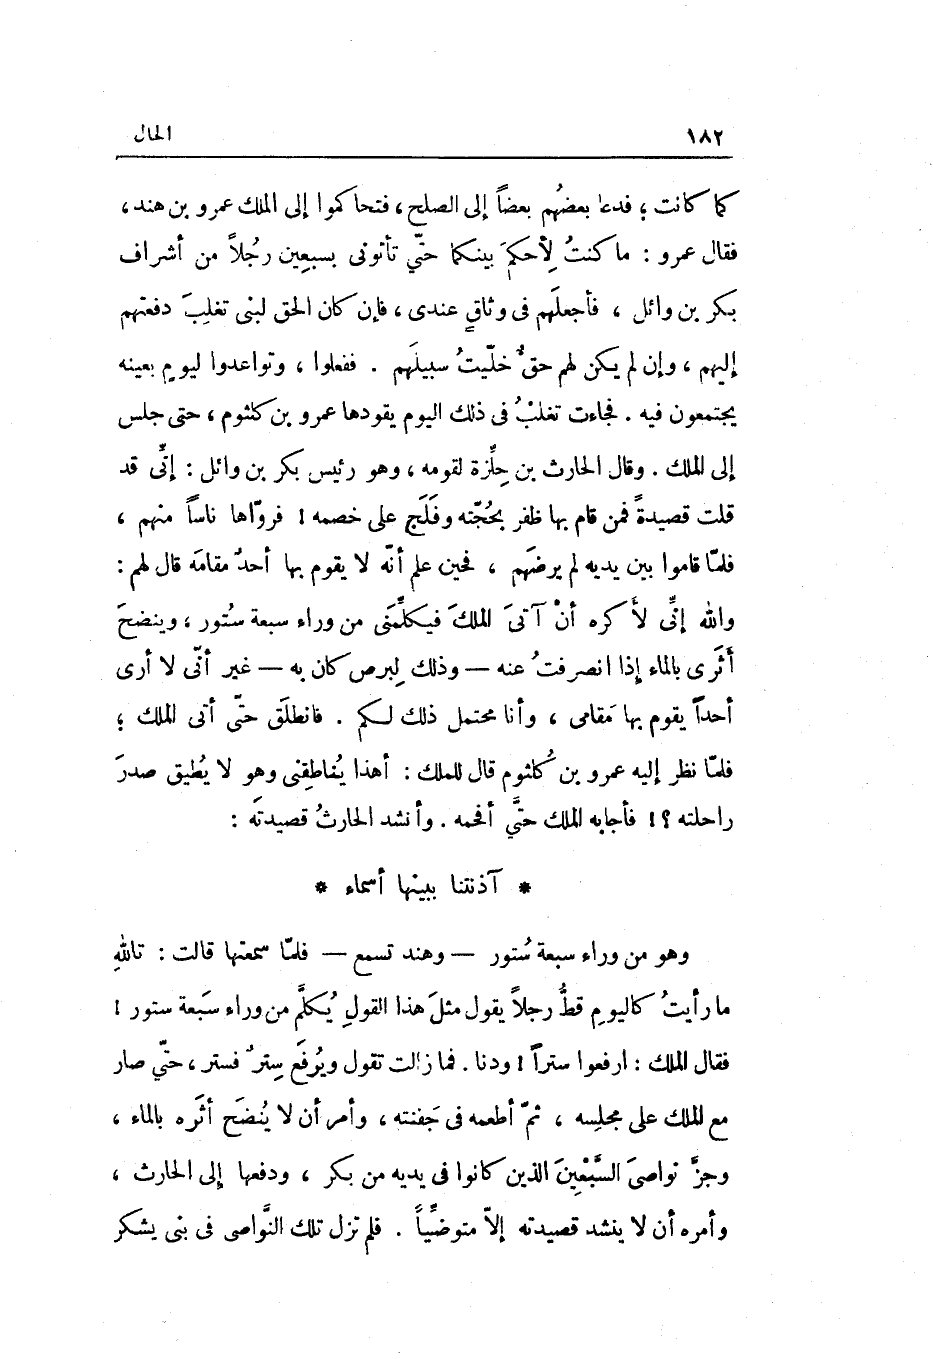 ١٨٢ الحال
كما كانت ؛ فدعا بعضُهم بعضاً إلى الصلح ، فتحاكموا إلى الملك عمرو بن هند ،
فقال عمرو : ما كنتُ لِأحكمَ بينكما حتّي تأتونى بسبعين رجُلاً من أشراف
بكر بن وائل ، فأجعلَهم فى وثاقٍ عندى ، فإن كان الحق لبنى تغلِبَ دفعتهم
إليهم ، وإن لم يكن لهم حقٌّ خلّيتُ سبيلَهم . ففعلوا ، وتواعدوا ليومٍ بعينه
يجتمعون فيه . فجاءت تغلبُ فى ذلك اليوم يقودها عمرو بن كلثوم ، حتى جلس
إلى الملك . وقال الحارث بن حِلِّزة لقومه ، وهو رئيس بكر بن وائل : إنّى قد
قلت قصيدةً فمن قام بها ظفر بحُجّته وفَلَج على خصمه ! فروّاها ناساً منهم ،
فلمّا قاموا بين يديه لم يرضَهم ، فحين علم أنّه لا يقوم بها أحدٌ مقامَه قال لهم :
والله إنِّى لأكره أنْ آتىَ الملكَ فيكلِّمَنى من وراء سبعة سُتور ، وينضحَ
أثَرى بالماء إذا انصرفتُ عنه — وذلك لِبرص كان به — غير أنّى لا أرى
أحداً يقوم بها مَقامى ، وأنا محتمل ذلك لكم . فانطلَق حتّي أتى الملك ؛
فلمّا نظر إليه عمرو بن كُلثوم قال للملك : أهذا يُناطِقنى وهو لا يُطيق صدرَ
راحلته ؟! فأجابه الملك حتَّي أفحمه . وأنشد الحارثُ قصيدتَه :
* آذنتنا ببينها أسماء *
وهو من وراء سبعة سُتور — وهند تسمع — فلمّا سمعتها قالت : تاللهِ
ما رأيتُ كاليومِ قطُّ رجلاً يقول مثلَ هذا القولِ يُكلَّم من وراء سَبعة ستور !
فقال الملك : ارفعوا ستراً ! ودنا . فما زالت تقول ويُرفَع سِترٌ فستر ، حتّي صار
مع الملك على مجلِسه ، ثمّ أطعمه فى جَفنته ، وأمر أن لا يُنضَح أثَره بالماء ،
وجزَّ نواصىَ السَّبْعِينَ الذين كانوا فى يديه من بكر ، ودفعها إلى الحارث ،
وأمره أن لا ينشد قصيدته إلاّ متوضِّياً . فلم تزل تلك النَّواصى فى بنى يشكر